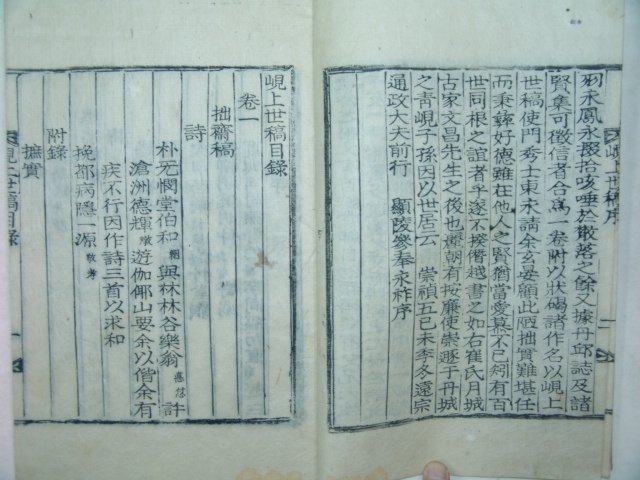 羽永鳳永滐拾咳唾於散落之餘又據丹邱誌及諸
賢集可徵信者合為一卷附以狀碣諸作名以峴上
世稿使門秀士東永請余玄晏顧此陋拙實難堪任
而秉彝好德雖在他人之賢猶當愛慕不已矧有百
世同根之誼者乎遂不揆僭越書之如右崔氏月城
古家文昌先生之後也麗朝有按廉使崇遯于丹城
之靑峴子孫因以世居云 崇禎五己未季冬遠宗
通政大夫前行 顯陵參奉永祚序
峴上世稿序
二
峴上世稿目錄
卷一
拙齋稿
詩
朴无悶堂伯和絪與林林谷樂翁真怤許
滄洲德輝燉遊伽倻山要余以偕余有
疾不行因作詩三首以求和
挽都病隱一源敬孝
附錄
摭實
峴上世稿目錄
一